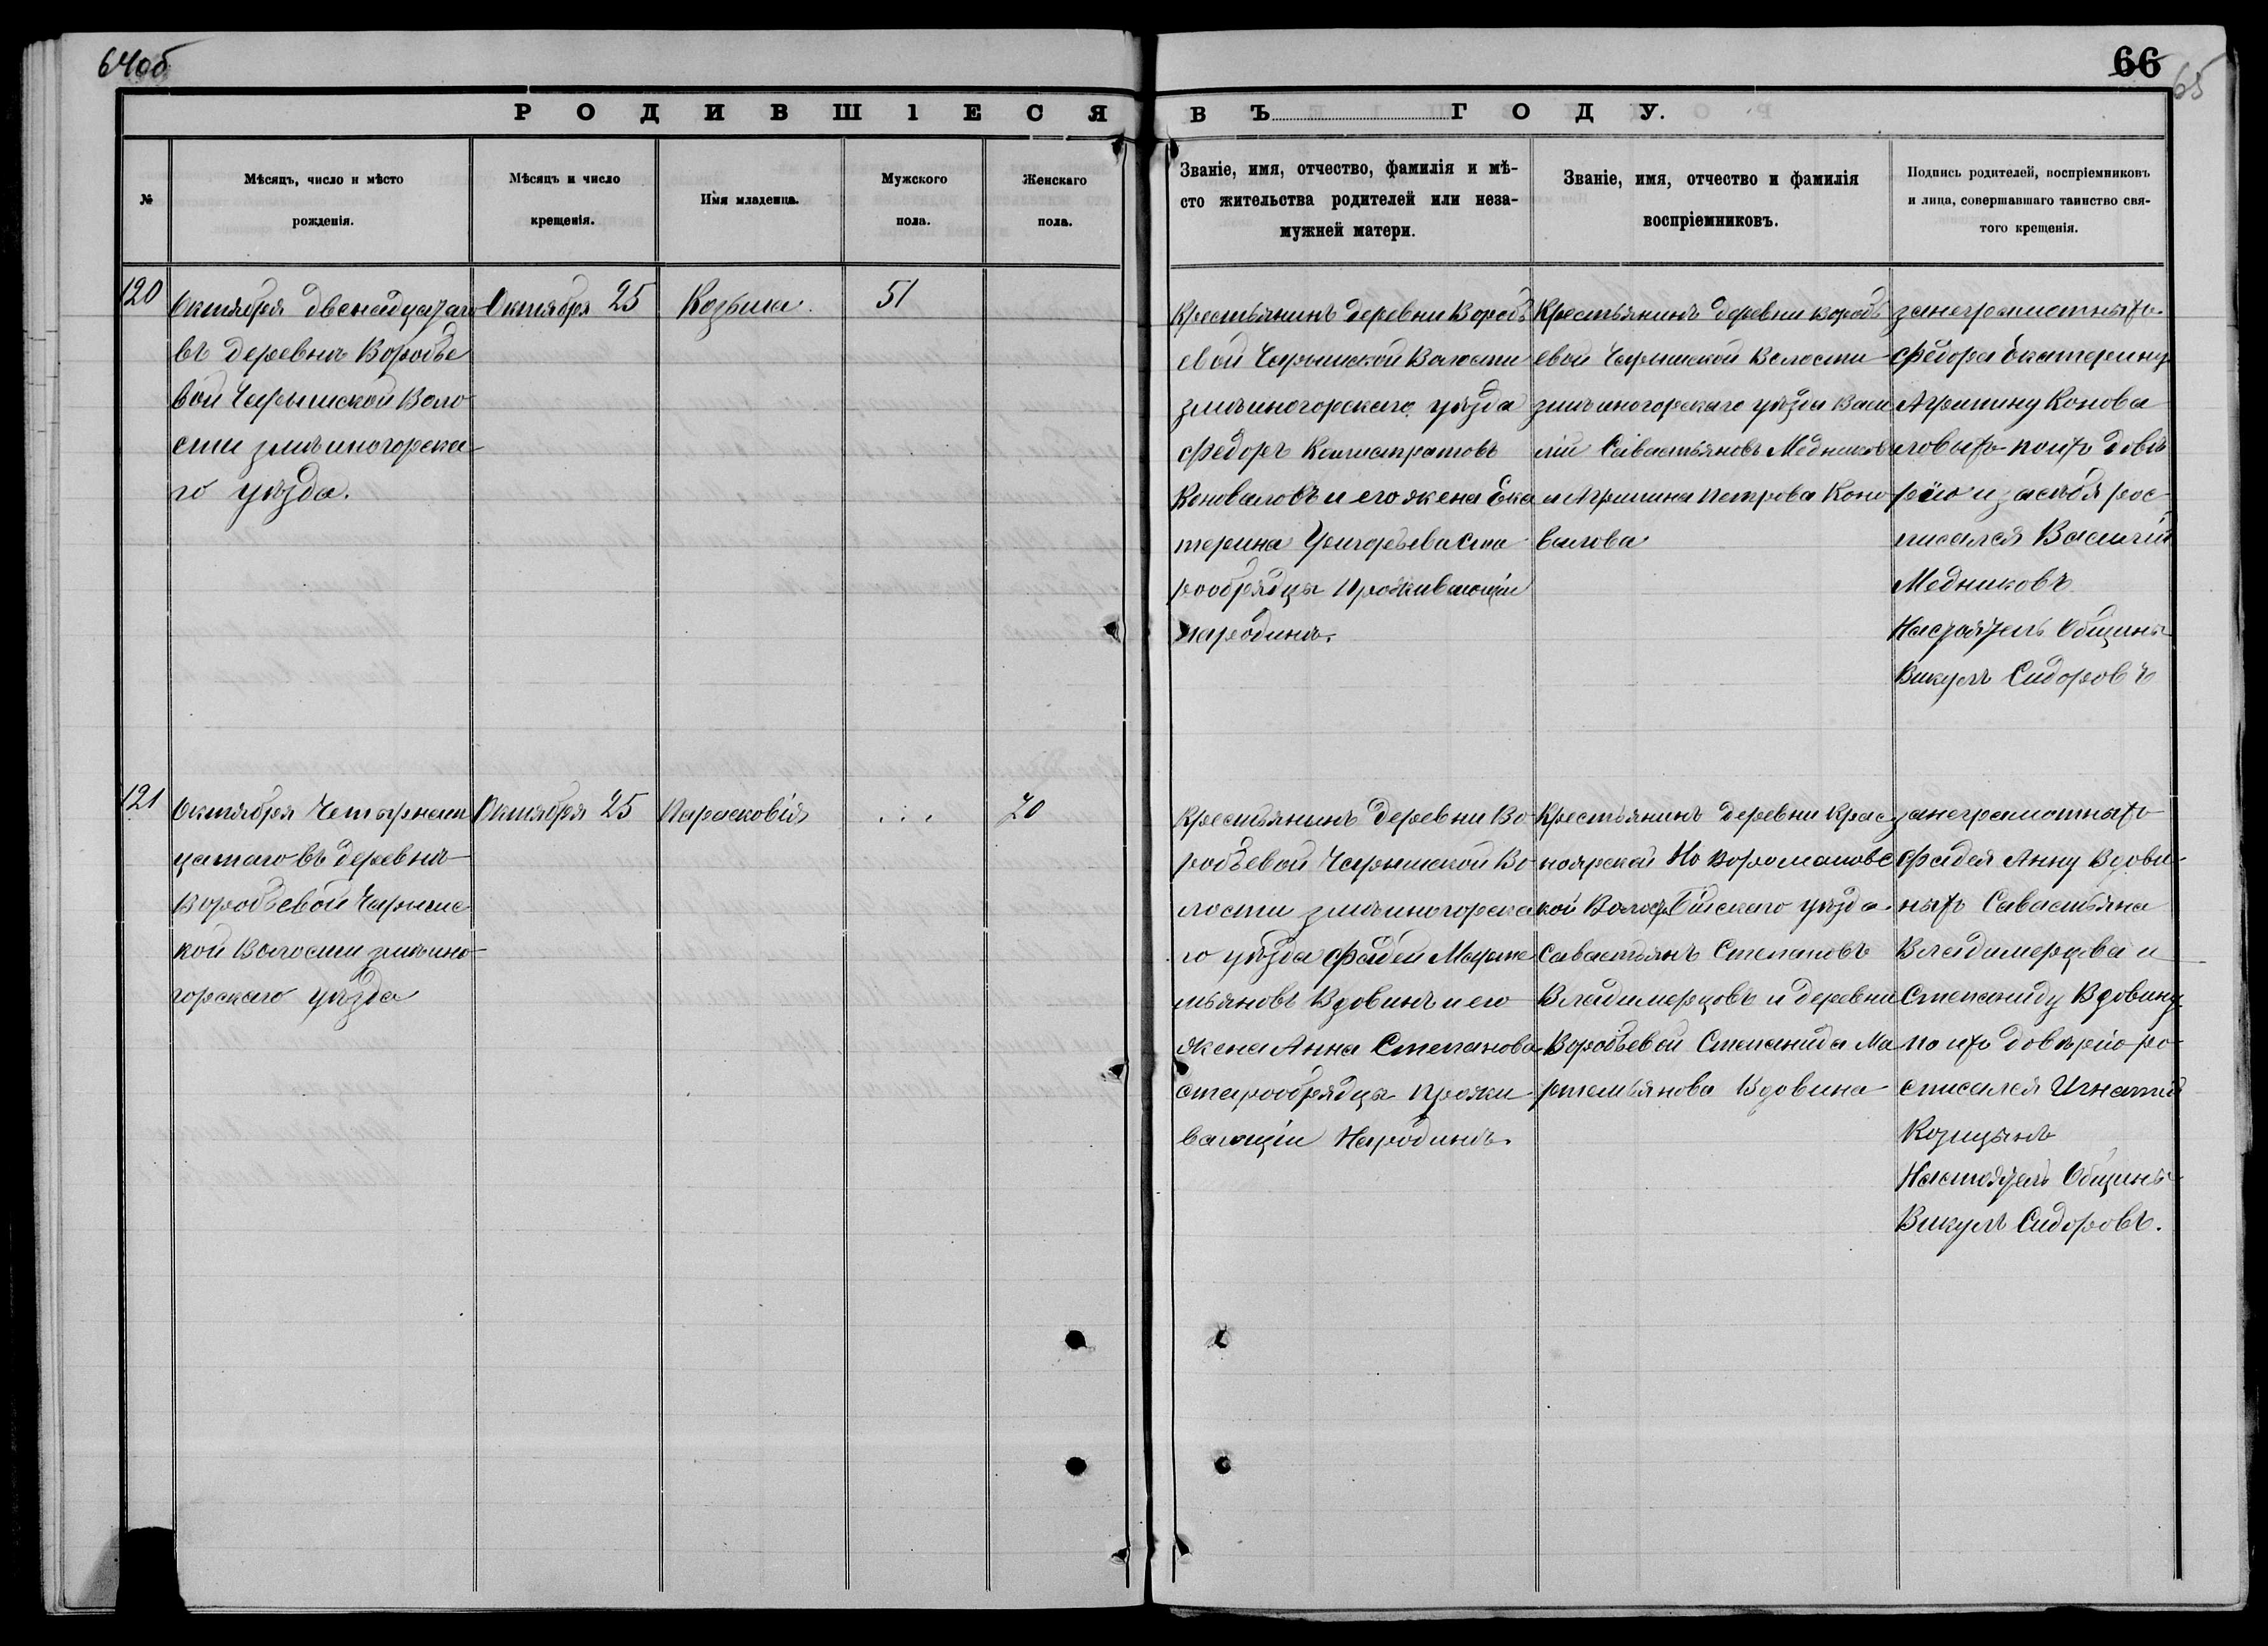 64об
66
65
РОДИВШІЕСЯ
ВЪ ГОДУ.
№
Мѣсяцъ, число и мѣсто
рожденія.
Мѣсяцъ и число
крещенія.
Имя младенца.
Мужского
пола.
Женскаго
пола.
Званіе, имя, отчество, фамилія и мѣ-
сто жительства родителей или неза-
мужней матери.
Званіе, имя, отчество и фамилія
воспріемниковъ.
Подпись родителей, воспріемниковъ
и лица, совершавшаго таинство свя-
того крещенія.
120
Октября двенадцатаго
въ деревнѣ Воробье
вой Чарышской Воло
сти змѣиногорска
го уѣзда.
Октября 25
Козьма.
51
Крестьянинъ деревни Воробь
евой Чарышской Волости
змѣиногорскаго уѣзда
Федоръ Калистратовъ
Коноваловъ и его жена Ека
терина Григорьева ста
рообрядцы проживающіи
народинѣ.
Крестьянинъ деревни вороб
евой Чарышской Волости
змѣиногорскаго уѣзда Васи
лій Савастьяновъ Медниковъ
и Агрипина Петрова Коно
валова
занеграмотныхъ
Фёдора Екатерину
Агрипину Конова
ловыхъ поихъ довѣ
рію и засебя рос
писался Василій
Медниковъ
Настоятель Общины
Викулъ Сидоровъ
121
Октября Четырнат
цатаго въ деревнѣ
Воробьевой Чарышс
кой Волости змѣино
горскаго уѣзда
Октября 25
Парасковія
. . .
70
Крестьянинъ деревни Во
робьевой Чарышской Во
лости змѣиногорска
го уѣзда Фадей Марте
мьяновъ Вдовинъ и его
жена Анна Степанова
старообрядцы прожи
вающіи Народинѣ.
Крестьянинъ деревни Крас
ноярской Новоромановс
кой Волост. Бійскаго уѣзда.
Савастьянъ Степановъ
Владимерцовъ и деревни
Воробьевой Степанида Ма
ртемьянова Вдовина
занеграмотныхъ
Фадея Анну Вдови-
ныхъ Савастьяна
Владимерцова и
Степаниду Вдовину
по ихъ довѣрію ро
списался Игнатій
Козицынъ
Настоятель Общины
Викулъ Сидоровъ.